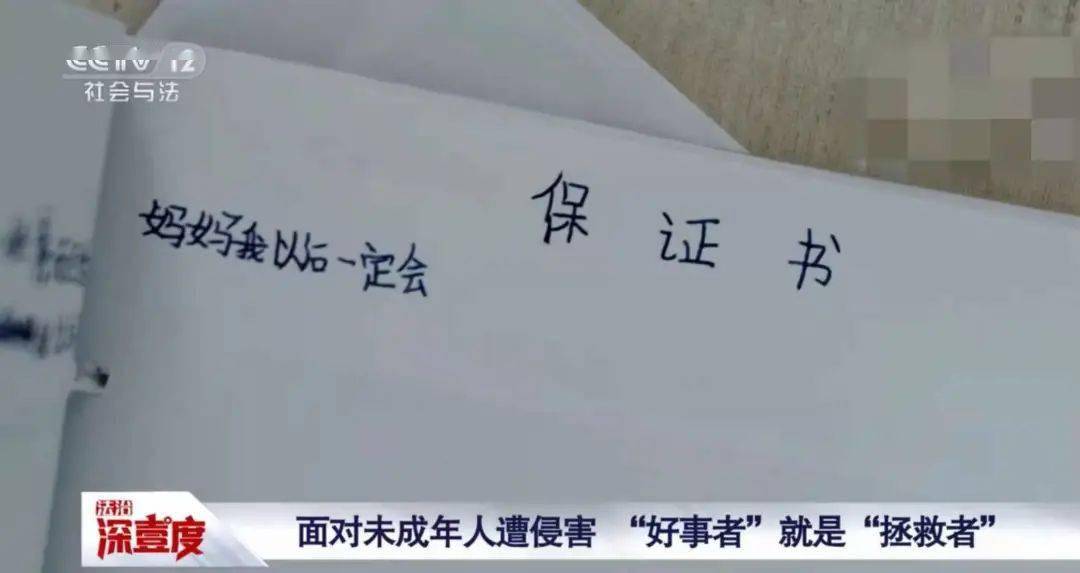 CCTV 12
社会与法
保证书
妈妈我以后一定会
法治
深壹度
面对未成年人遭侵害 “好事者”就是“拯救者”